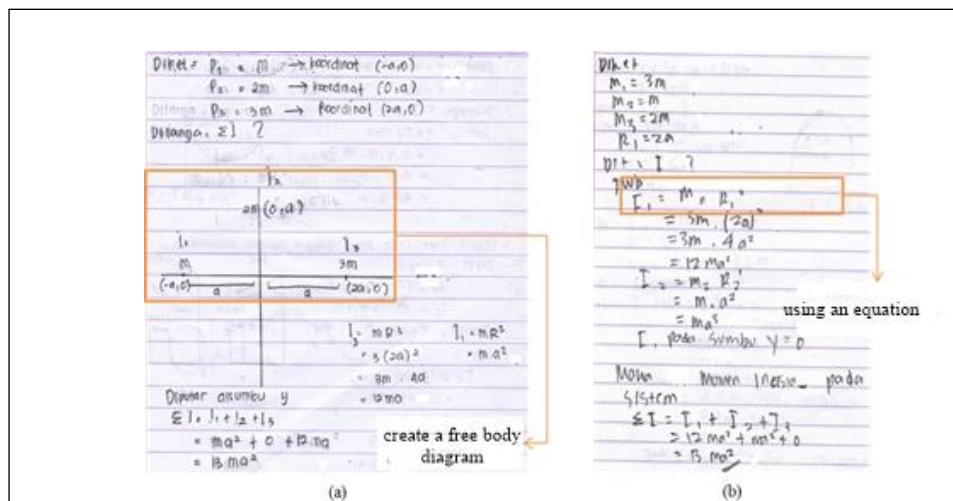 Diket = P₁ = m → koordinat (-a,0)
P₂ = 2m → koordinat (0,a)
P₃ = 3m → koordinat (2a,0)
Ditanya. ΣI ?
I₂
2m (0,a)
I₁ I₃
m 3m
(-a,0) a a (2a,0)
I₃ = mR² I₁ = mR²
= 3(2a)² = m.a²
= 3m . 4a
= 12ma
Diputar disumbu y
ΣI = I₁ + I₂ + I₃
= ma² + 0 + 12 ma²
= 13 ma²
create a free body
diagram
(a)
Diket
m₁ = 3m
m₂ = m
m₃ = 2m
R₁ = 2a
Dit = I ?
Jwb
I₁ = m₁ R₁²
= 3m. (2a)²
= 3m . 4a²
= 12 ma²
I₂ = m₂ R₂²
= m. a²
= ma²
I, pada sumbu y = 0
Momen Inersia pada
sistem
ΣI = I₁ + I₂ + I₃
= 12 ma² + ma² + 0
= 13 ma²
using an equation
(b)